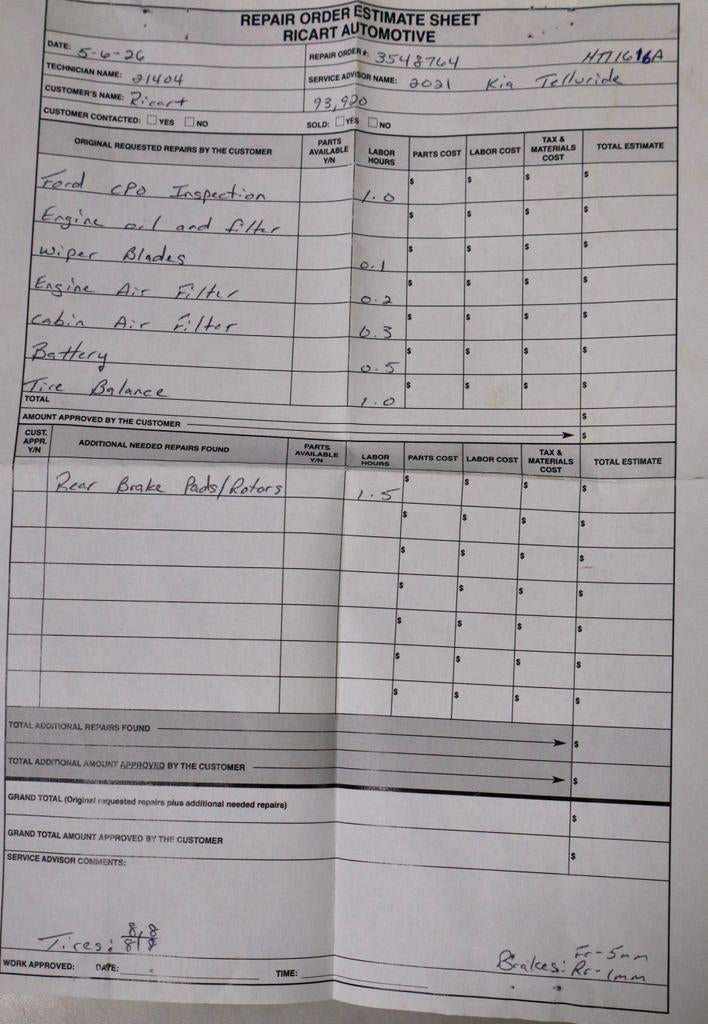 REPAIR ORDER ESTIMATE SHEET
RICART AUTOMOTIVE
DATE: 5-6-26 REPAIR ORDER #: 3548764 HTI1616A
TECHNICIAN NAME: 21404 SERVICE ADVISOR NAME: 2021 Kia Telluride
CUSTOMER'S NAME: Ricart 93,920
CUSTOMER CONTACTED: ☐ YES ☐ NO SOLD: ☐ YES ☐ NO
ORIGINAL REQUESTED REPAIRS BY THE CUSTOMER PARTS AVAILABLE Y/N LABOR HOURS PARTS COST LABOR COST TAX & MATERIALS COST TOTAL ESTIMATE
Ford CPO Inspection 1.0 $ $ $ $
Engine oil and filter $ $ $ $
Wiper Blades 0.1 $ $ $ $
Engine Air Filter 0.2 $ $ $ $
Cabin Air Filter 0.3 $ $ $ $
Battery 0.5 $ $ $ $
Tire Balance 1.0 $ $ $ $
TOTAL $
AMOUNT APPROVED BY THE CUSTOMER $
CUST. APPR. Y/N ADDITIONAL NEEDED REPAIRS FOUND PARTS AVAILABLE Y/N LABOR HOURS PARTS COST LABOR COST TAX & MATERIALS COST TOTAL ESTIMATE
Rear Brake Pads/Rotors 1.5 $ $ $ $
$ $ $ $
$ $ $ $
$ $ $ $
$ $ $ $
$ $ $ $
$ $ $ $
TOTAL ADDITIONAL REPAIRS FOUND $
TOTAL ADDITIONAL AMOUNT APPROVED BY THE CUSTOMER $
GRAND TOTAL (Original requested repairs plus additional needed repairs) $
GRAND TOTAL AMOUNT APPROVED BY THE CUSTOMER $
SERVICE ADVISOR COMMENTS:
Tires: 8|8
8|8
Brakes: Fr-5mm
Rr-1mm
WORK APPROVED: DATE: TIME: